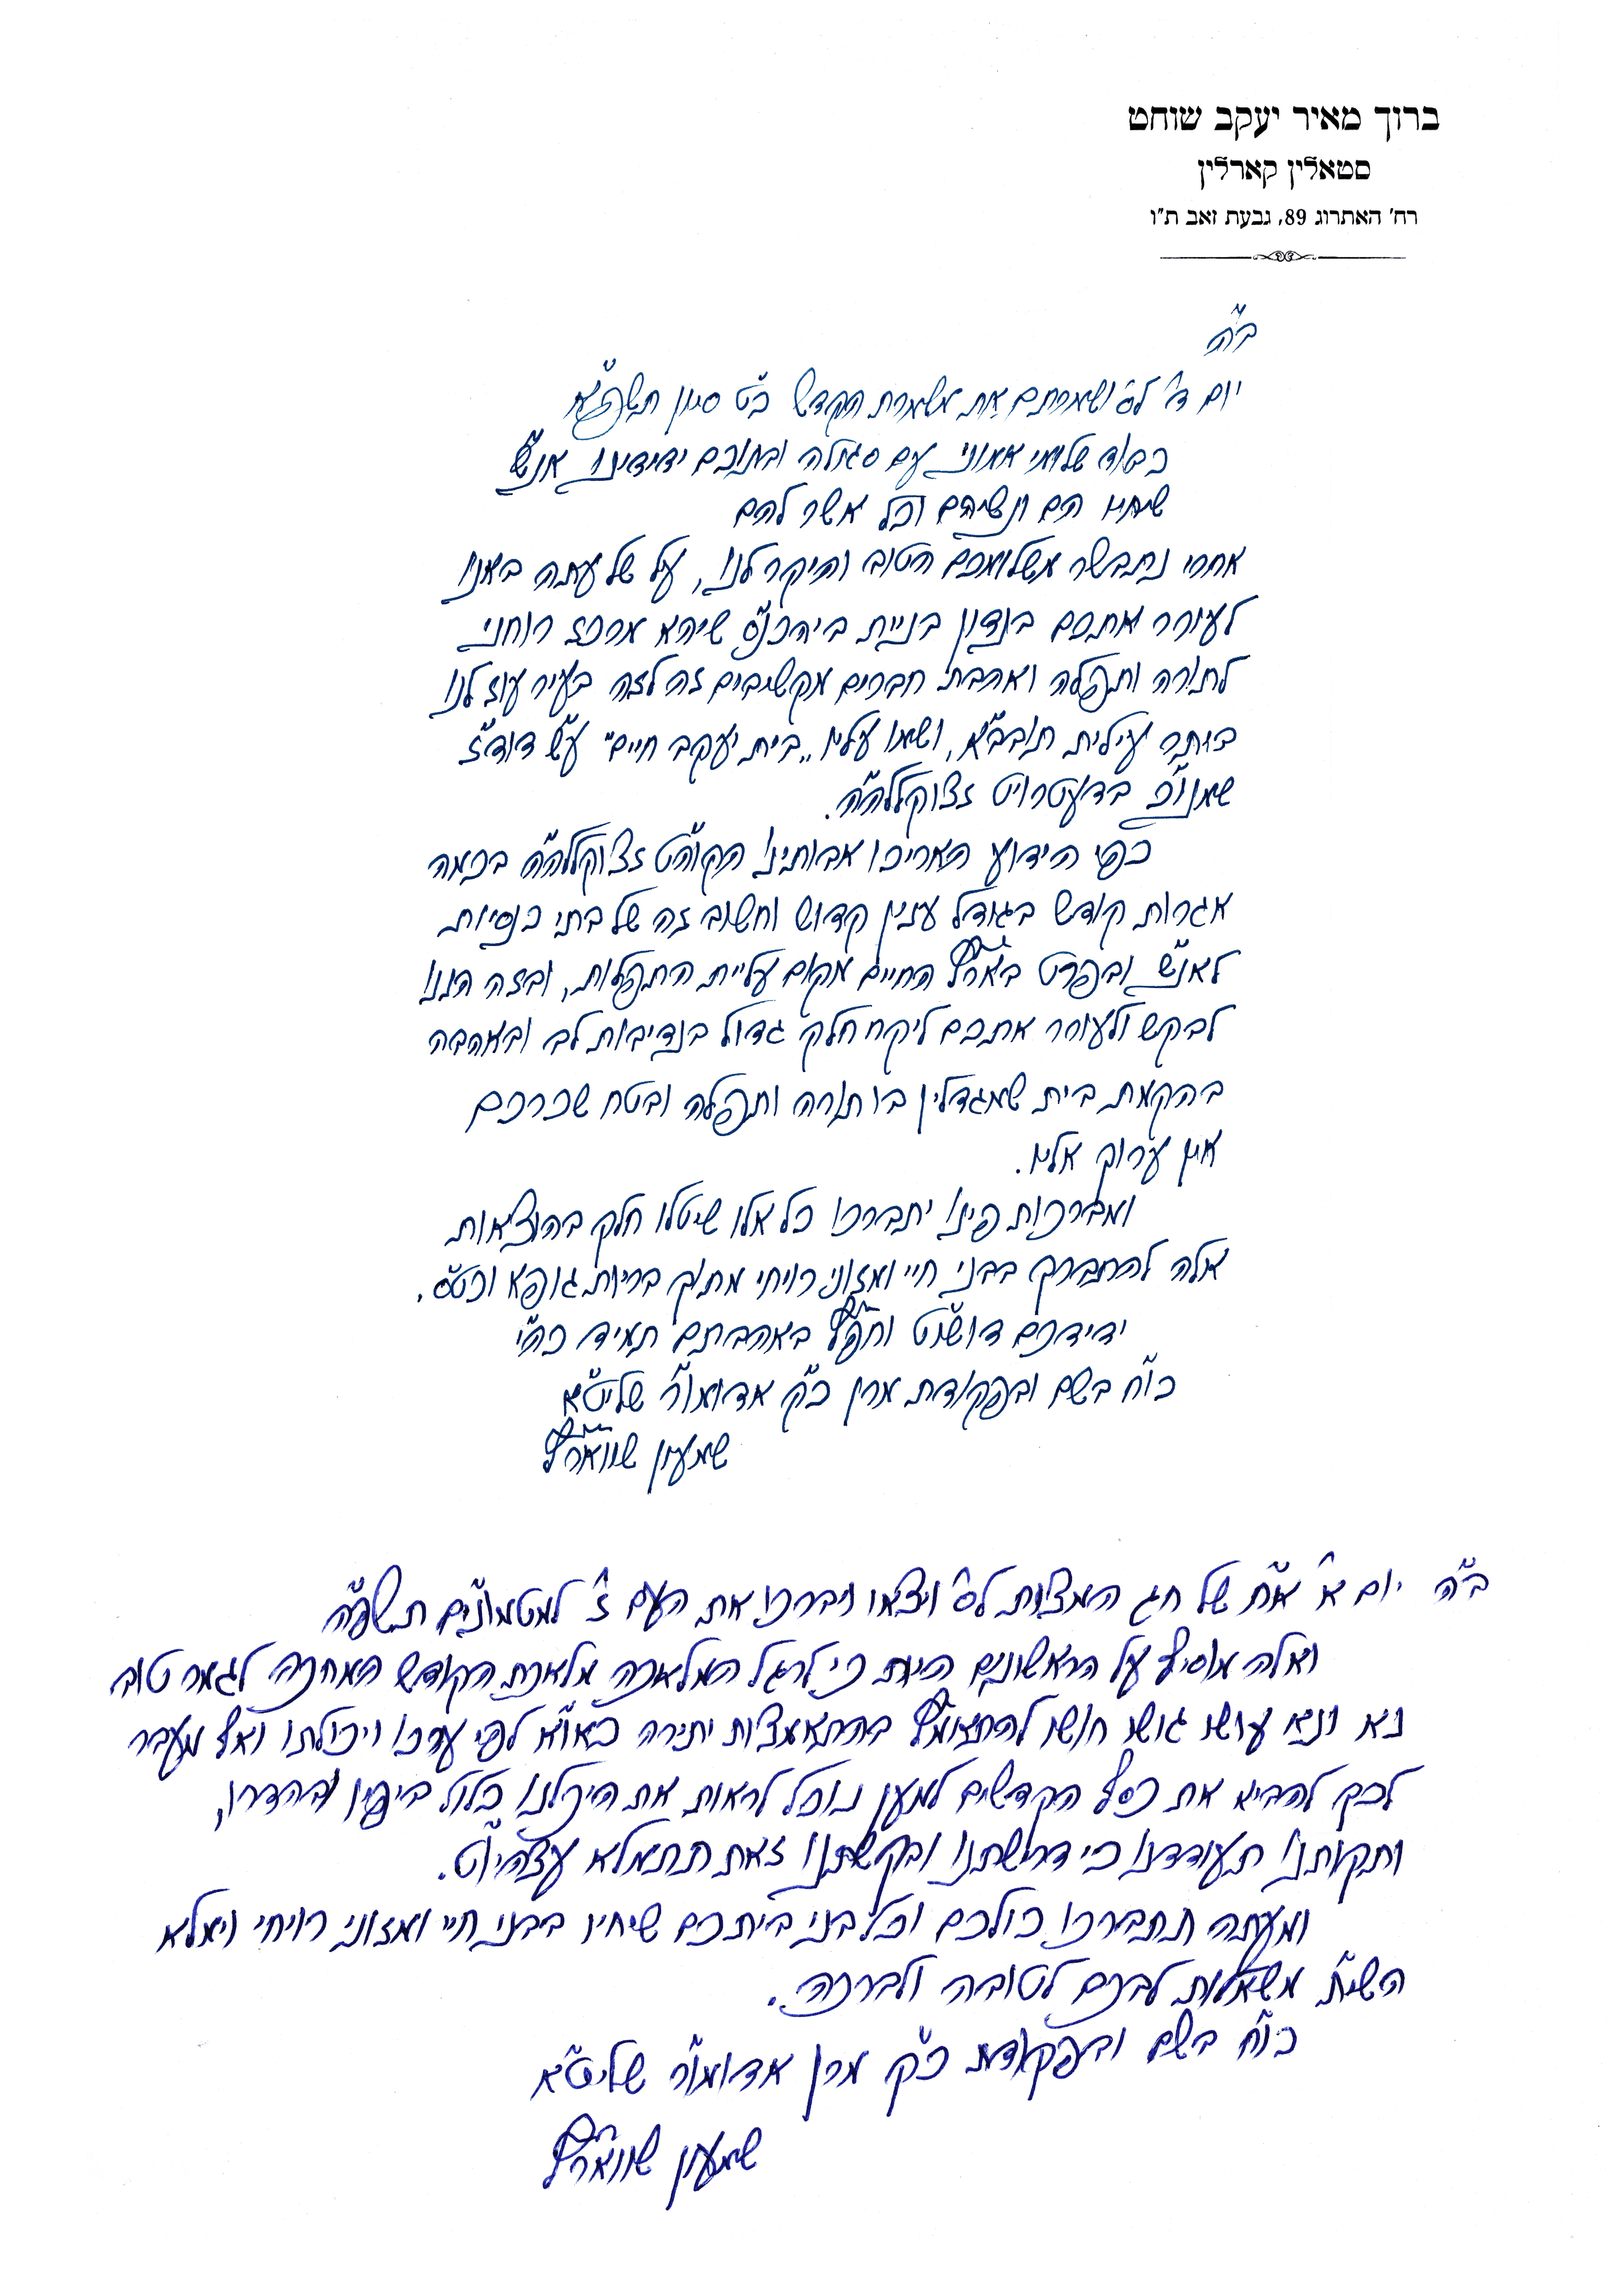 ברוך מאיר יעקב שוחט
סטאלין קארלין
רח' האתרוג 89, גבעת זאב ת"ו
ב"ה
יום ד' לס' ושמרתם את משמרת הקדש כ"ט סיון תשפ"א
כבוד שלומי אמוני עם סגולה ובתוכם ידידינו אנ"ש
שיחיו הם ונשיהם וכל אשר להם
אחרי נתבשר משלומכם הטוב והיקר לנו, על של עתה באנו
לעורר אתכם בנדון בניית ביהכנ"ס שיהא מרכז רוחני
לתורה ותפלה ואהבת חברים מקשיבים זה לזה בעיר עוז לנו
ביתר עילית תובב"א, ושמו עליו "בית יעקב חיים" ע"ש דוד"ז
שמנו"כ בדעטרויט זצוקללה"ה.
כפי הידוע האריכו אבותינו הקוה"ט זצוקללה"ה בכמה
אגרות קודש בגודל ענין קדוש וחשוב זה של בתי כנסיות
לאנ"ש ובפרט באר"ץ החיים מקום עליית התפלות, ובזה הננו
לבקש ולעורר אתכם ליקח חלק גדול בנדיבות לב ובאהבה
בהקמת בית שמגדלין בו תורה ותפלה ובטח שכרכם
אין ערוך אליו.
ומברכות פינו יתברכו כל אלו שיטלו חלק בהוצאות
אלה להתברך בבני חיי ומזוני רויחי מתוך בריות גופא וכט"ס.
ידידכם דושו"ט וחפ"ץ באהבתם תמיד כה"י
כו"ח בשם ובפקודת מרן כ"ק אדומו"ר שליט"א
שמעון שווארץ
ב"ה יום א' א"ח של חג המצות לס' ויצאו ויברכו את העם ז' למטמונים תשפ"ה
ואלה מוסיף על הראשונים היות כי לרגל המלאכה מלאכת הקודש המחכה לגמר טוב
נא ונא עושו גושו חושו להתאמץ בהתאמצות יתירה כאו"א לפי ערכו ויכולתו ואף מעבר
לכך להביא את כסף הקדשים למען נוכל לראות את היכלנו כלול ביפיו ובהדרו,
ותקותנו תעודדנו כי דרישתנו ובקשתנו זאת תתמלא עצהיו"ט.
ומעתה תתברכו כולכם וכל בני ביתכם שיחיו בבני חיי ומזוני רויחי וימלא
השי"ת משאלות לבכם לטובה ולברכה.
כו"ח בשם ובפקודת כ"ק מרן אדומו"ר שליט"א
שמעון שווארץ